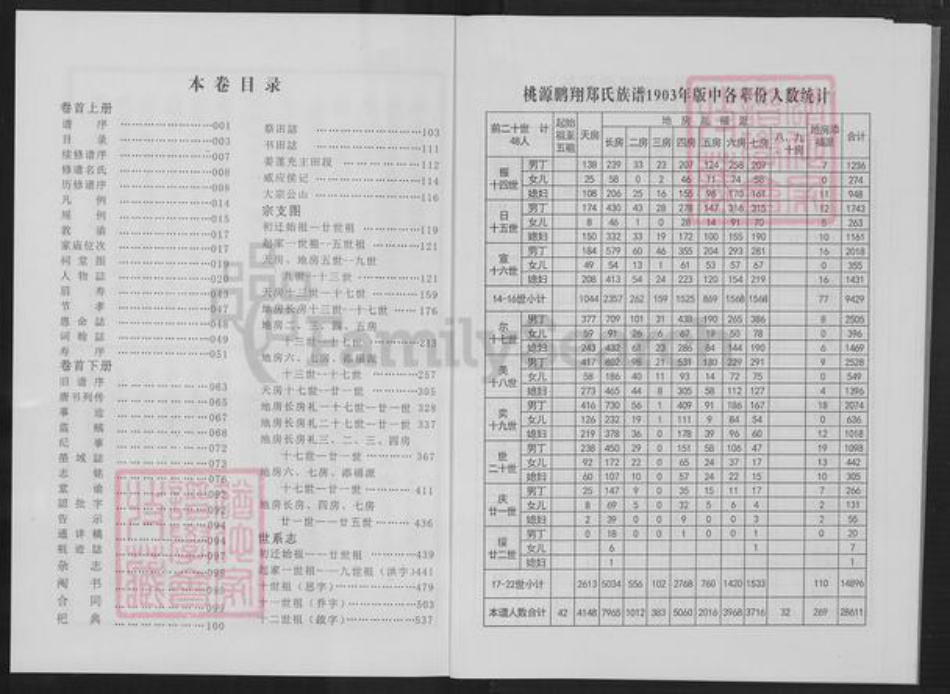 本卷目录
卷首上册
谱序 001
目录 003
续修谱序 007
修谱名氏 008
历修谱序 008
凡例 014
规例 015
家庙位次 017
祠堂图
人物誌 020
节孝 047
恩命誌 048
词翰誌 049
寿序 051
卷首下册
旧谱序 063
唐书列传 065
事迹 067
068
纪事 072
茔域誌 073
志铭 076
告示
通详稿 094
097
杂志
闱书
合同
祀典 100
祭田誌 103
书田誌 111
姜莲充主田段 112
威应侯记 114
大宗公山 116
宗支图
初迁始祖一廿世祖 119
起家一世祖一五世祖 121
天房、地房五世一九世
九世一十三世 121
天房十三世一十七世 159
地房长房十三世一十七世 176
地房二、三、四、五房
十三世一十七世 213
地房六、七房、添福派
十三世一十七世 257
天房十七世一廿一世 305
地房长房礼一十七世一廿一世 328
地房长房礼二十七世一廿一世 337
地房长房礼三、二、三、四房
十七世一廿一世 367
地房六、七房、添福派
十七世一廿一世 411
地房长房、四房、七房
廿一世一廿五世 436
世系志
初迁始祖一一廿世祖 439
起家一世祖一一九世祖（洪字）441
十世祖（思字） 479
十一世祖（乔字） 503
十二世祖（啟字） 537
桃源鹏翔郑氏族谱1903年版中各辈份人数统计
前二十世 计48人 起始祖至五祖 天房 长房 二房 三房 四房 五房 六房 七房 八、九、十房 合计
十四世 男丁 138 239 33 23 207 124 258 207 7 1236
女儿 25 58 0 2 46 11 74 58 0 274
媳妇 108 206 25 16 155 98 170 161 11 948
日十五世 男丁 174 430 43 28 278 147 316 315 12 1743
女儿 8 46 1 0 28 14 91 70 5 263
媳妇 150 332 33 19 172 100 155 190 10 1161
宣十六世 男丁 184 579 60 46 355 204 293 281 16 2018
女儿 49 54 13 1 61 53 57 67 0 355
媳妇 208 413 54 24 223 120 154 219 16 1431
14-16世小计 1044 2357 262 159 1525 869 1568 1568 77 9429
尔十七世 男丁 377 709 101 31 438 190 265 386 8 2505
女儿 59 91 26 6 67 19 50 78 0 396
媳妇 243 432 61 23 286 84 144 190 6 1469
美十八世 男丁 417 802 98 21 531 130 229 291 9 2528
女儿 58 186 40 11 93 14 72 75 0 549
媳妇 273 465 44 8 305 58 112 127 4 1396
奕十九世 男丁 416 730 56 1 409 91 186 167 18 2074
女儿 126 232 19 1 111 9 84 54 0 636
媳妇 219 378 36 0 178 39 96 60 12 1018
世二十世 男丁 238 450 29 0 151 58 106 47 19 1098
女儿 92 172 22 0 65 24 37 17 13 442
媳妇 60 107 10 0 57 24 22 15 10 305
庆廿一世 男丁 25 147 9 0 35 15 11 17 7 266
女儿 8 69 5 0 32 5 6 4 2 131
媳妇 2 39 0 0 9 0 0 3 2 55
廿二世 男丁 0 18 0 0 1 0 0 1 0 20
女儿 6 1 7
媳妇 1 1
17-22世小计 2613 5034 556 102 2768 760 1420 1533 110 14896
本谱人数合计 42 4148 7965 1012 383 5060 2016 3968 3716 32 269 28611
FamilySearch